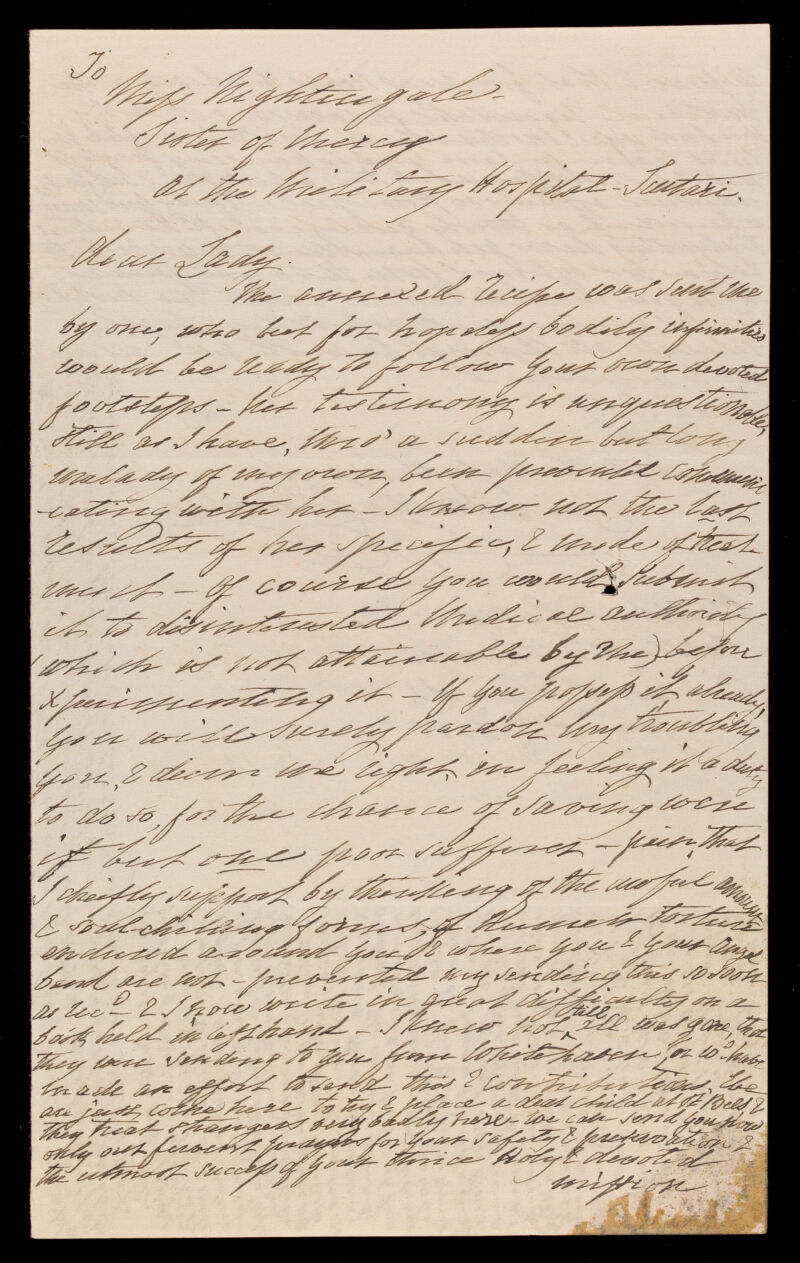 To
Miss Nightingale -
Sister of Mercy
at the Military Hospital - Scutari.
dear Lady.
The annexed recipe was sent me
by one, who but for hopeless bodily infirmities
would be ready to follow your own devoted
footsteps - her testimony is unquestionable,
still as I have, thro' a sudden but long
malady of my own, been prevented communi
-cating with her - I know not the last
results of her specific, & mode of treat-
ment - of course you would submit
it to disinterested Medical authority
(which is not attainable by me) before
xperimenting it - If you possess it already,
you will surely pardon my troubling
you, & deem me right, in feeling it a duty
to do so, for the chance of saving were
it but one poor sufferer - pain that
I chiefly support by thinking of the awful amount
& soul-chilling forms, of human torture
endured around you & where you & your angel
band are not - prevented my sending this so soon
as recd - & I now write in great difficulty on a
book held in left hand - I knew not till all was gone, that
they were sending to you from Whitehaven, or wd. have
made an effort to send this & contributions. We
are just come here to try & place a dear child at St. Bees &
they treat strangers very badly here - we can send you now
only our fervent prayers for your safety & preservation &
the utmost success of your thrice Holy & devoted
mission